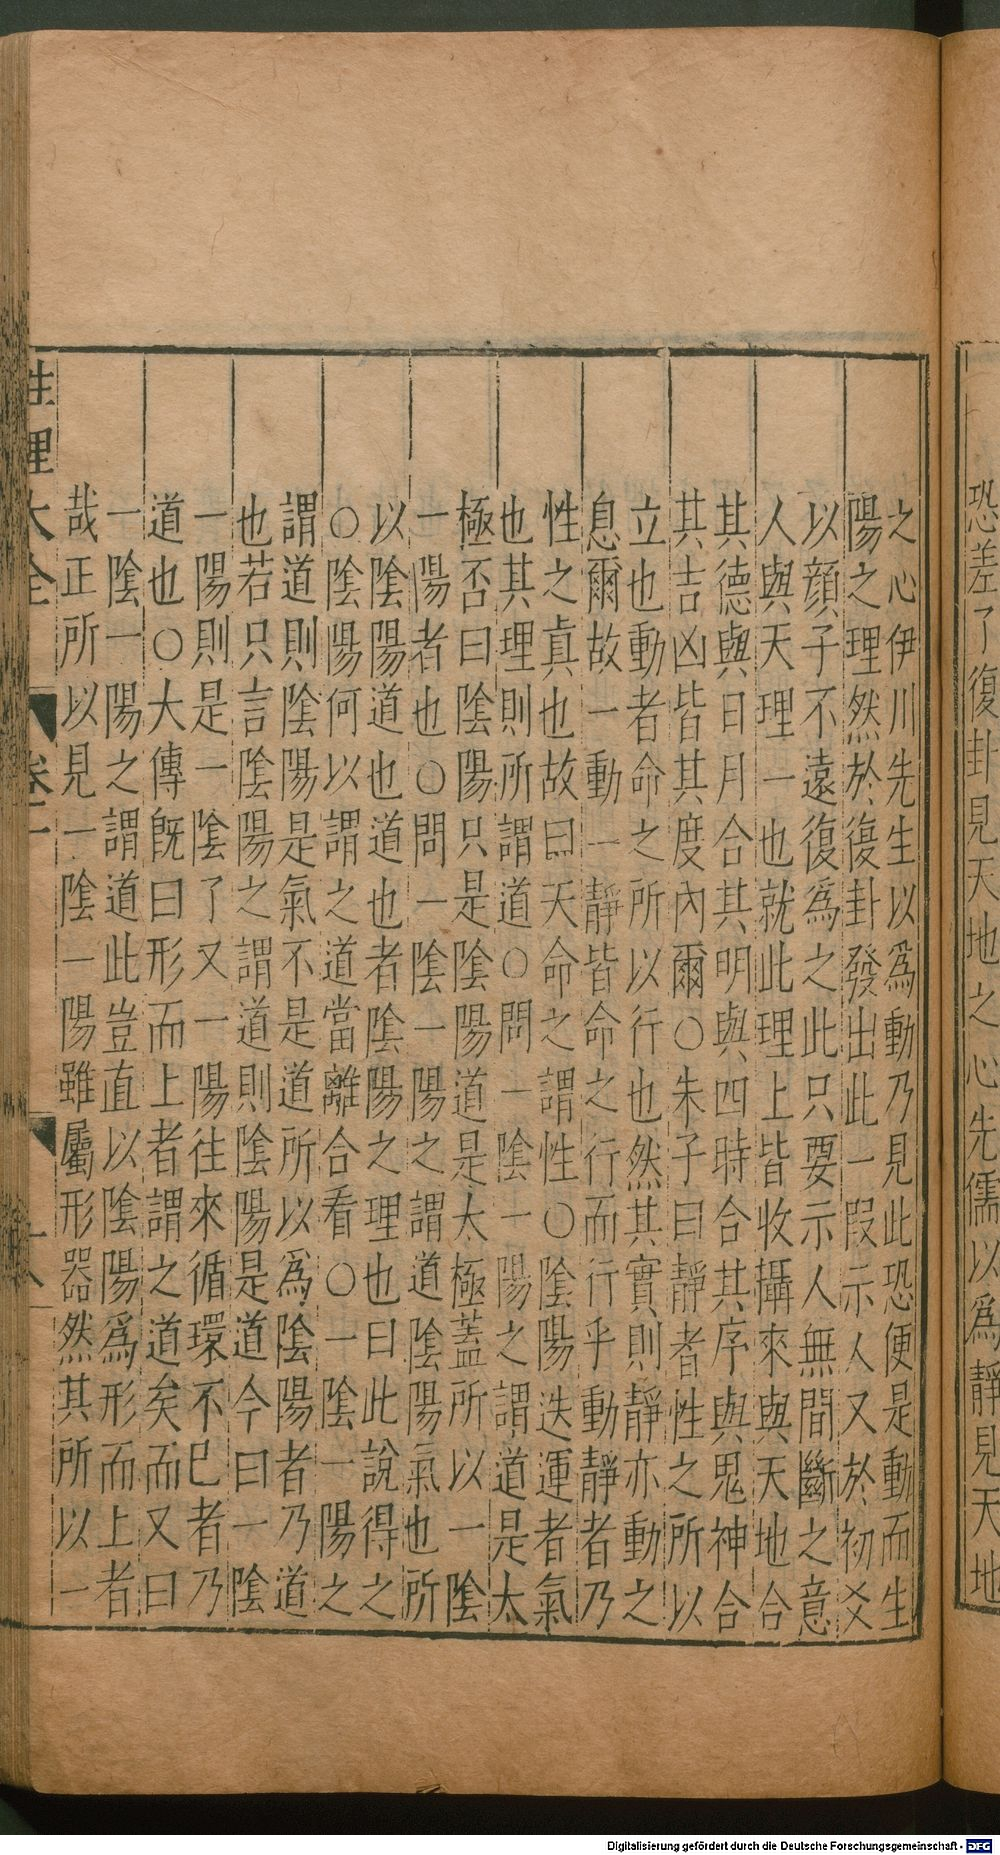 恐差了復卦見天地之心先儒以爲靜見天地
之心伊川先生以爲動乃見此恐便是動而生
陽之理然於復卦發出此一叚示人又於初爻
以顔子不遠復爲之此只要示人無間斷之意
人與天理一也就此理上皆收攝來與天地合
其德與日月合其明與四時合其序與鬼神合
其吉凶皆其度內爾○朱子曰靜者性之所以
立也動者命之所以行也然其實則靜亦動之
息爾故一動一靜皆命之行而行乎動靜者乃
性之眞也故曰天命之謂性○陰陽迭運者氣
也其理則所謂道○問一陰一陽之謂道是太
極否曰陰陽只是陰陽道是太極蓋所以一陰
一陽者也○問一陰一陽之謂道陰陽氣也所
以陰陽道也道也者陰陽之理也曰此說得之
○陰陽何以謂之道當離合看○一陰一陽之
謂道則陰陽是氣不是道所以爲陰陽者乃道
也若只言陰陽之謂道則陰陽是道今曰一陰
一陽則是一陰了又一陽往來循環不已者乃
道也○大傳旣曰形而上者謂之道矣而又曰
一陰一陽之謂道此豈直以陰陽爲形而上者
哉正所以見一陰一陽雖屬形器然其所以一
性理大全 卷一
Digitalisierung gefördert durch die Deutsche Forschungsgemeinschaft - DFG